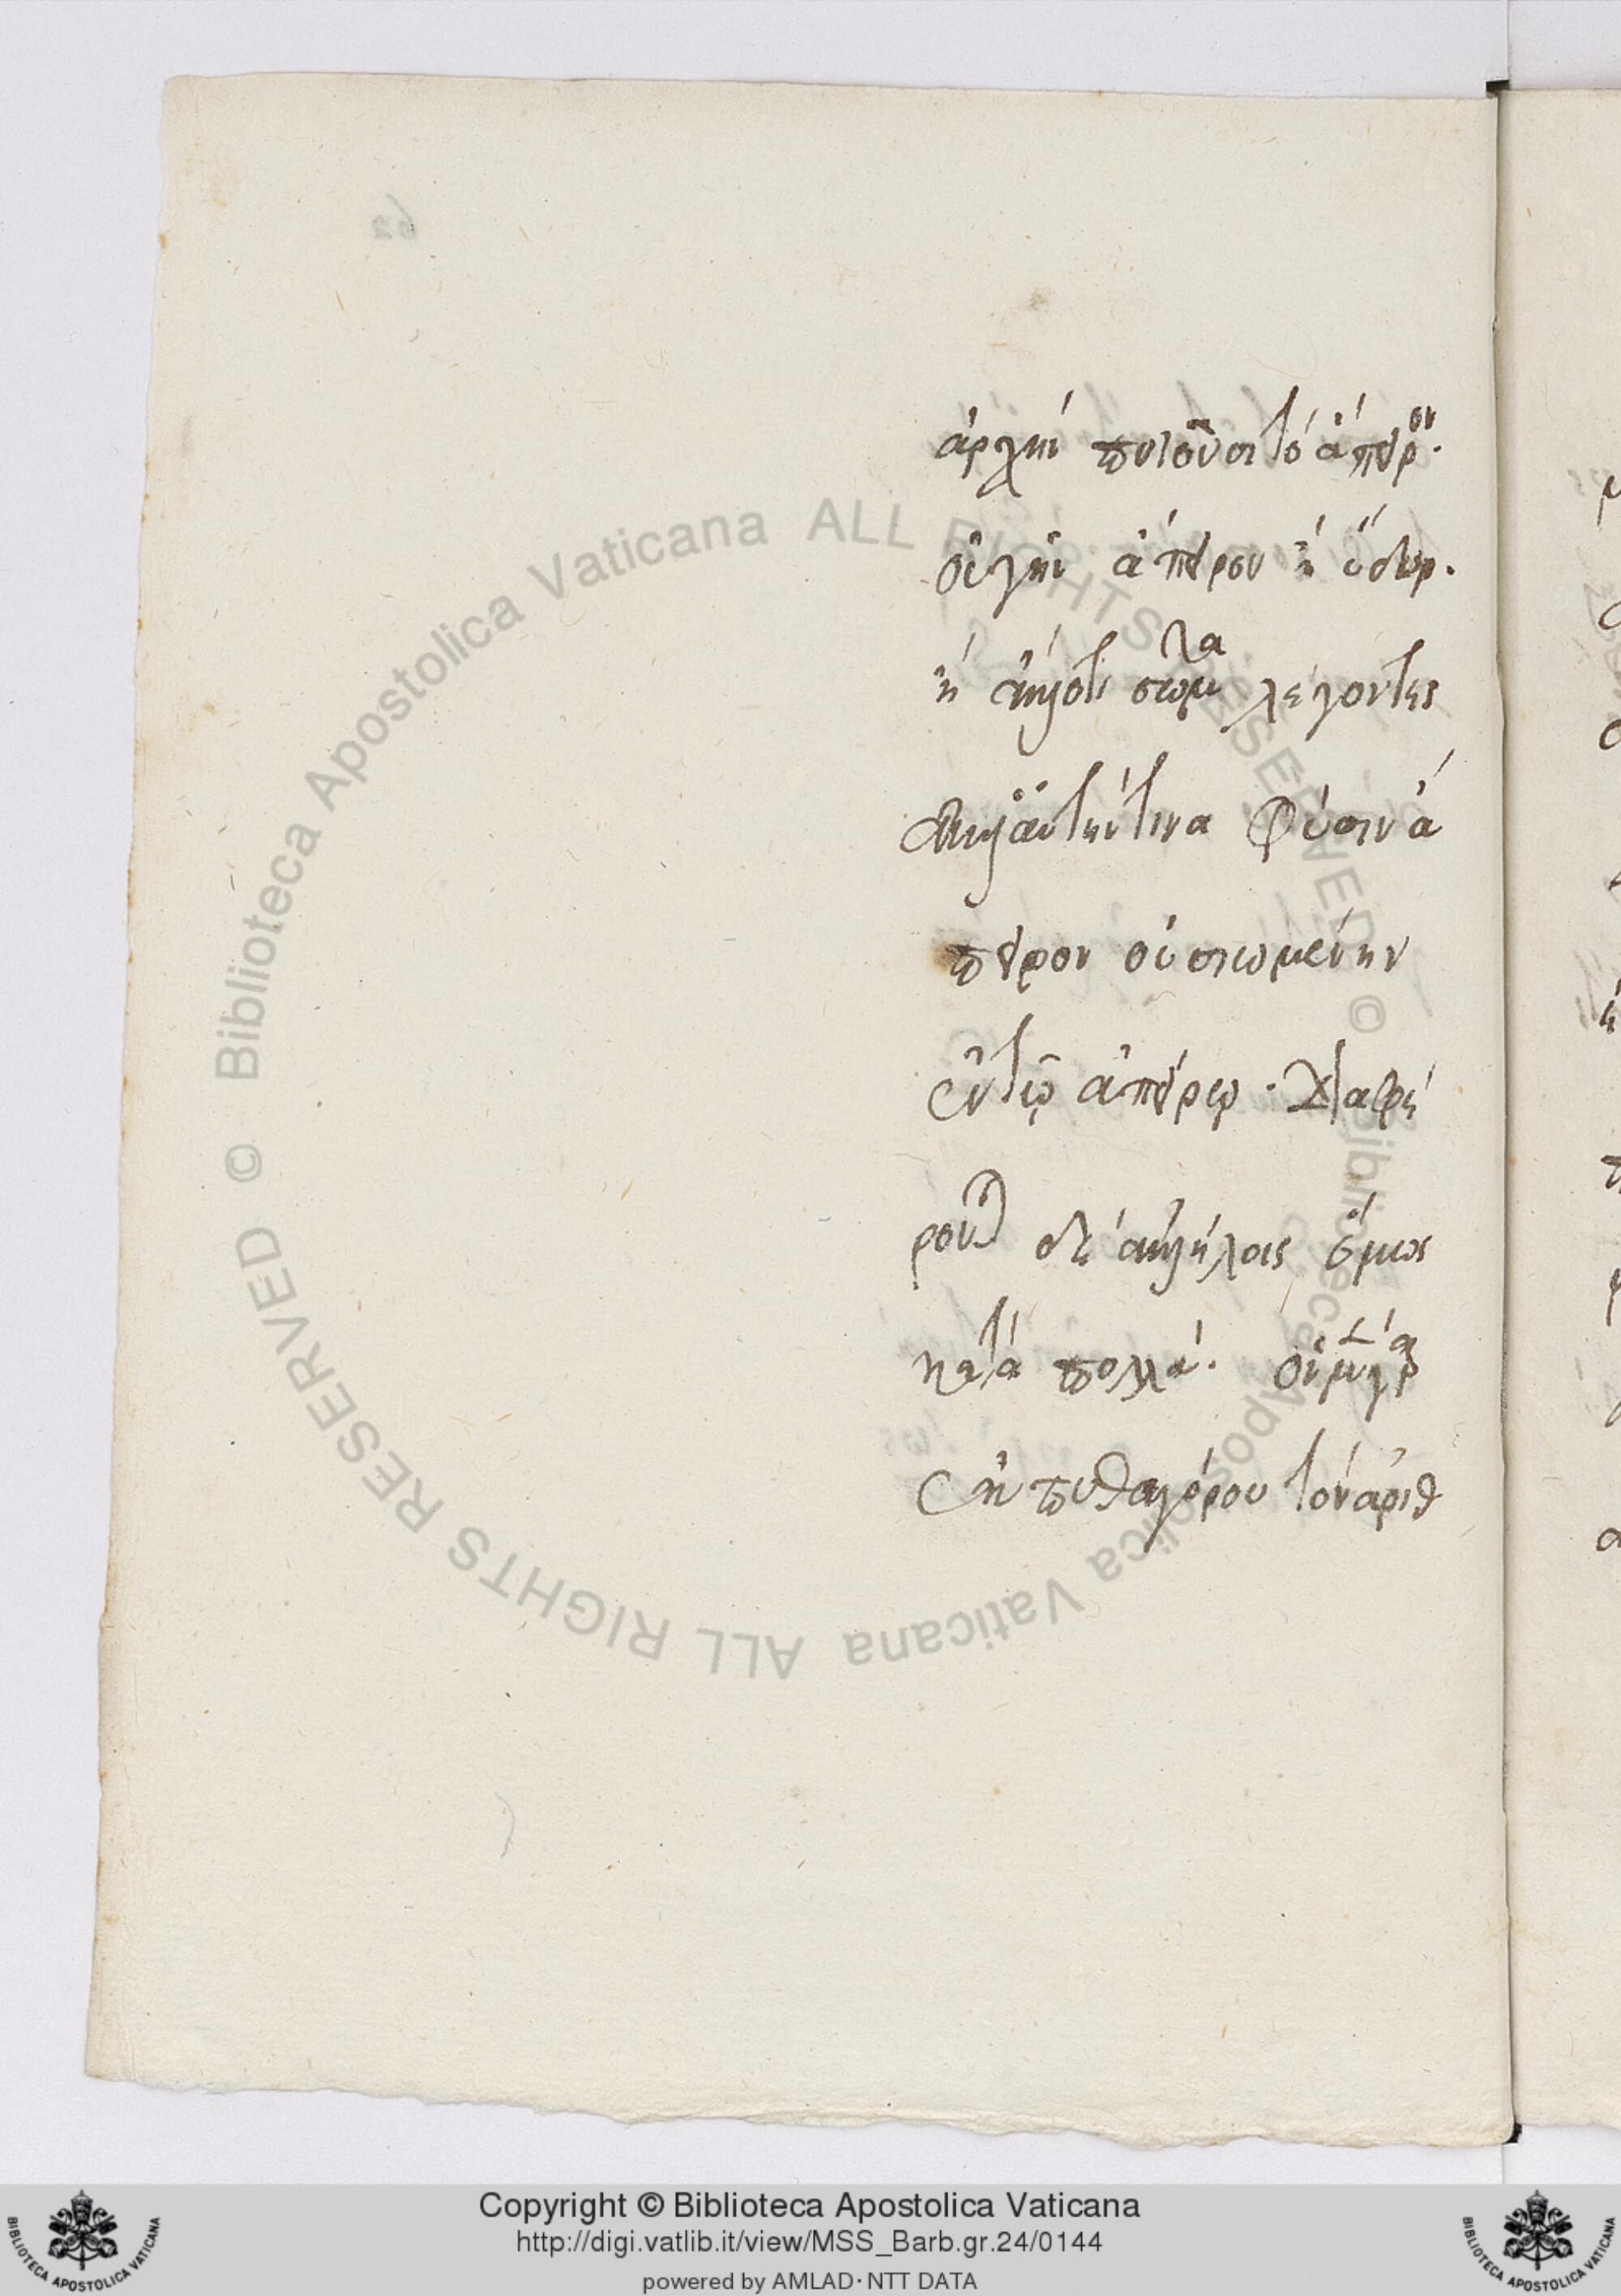 ἀρχὴν ποιοῦσι τὸ ἄπειρον.
οὐκ ἀπείρου ἢ ὕδωρ.
ἢ ἄλλό τι σῶμα λέγοντες
ἀλλ' αὐτήν τινα φύσιν ἀ
πειρον οὐσιωμένην
ἐν τῷ ἀπείρῳ. διαφέ
ρουσι δὲ ἀλλήλοις ὅμως
κατὰ πολλά. οἱ μὲν γὰρ
ἐκ πυθαγόρου τὸν ἀριθ
Copyright © Biblioteca Apostolica Vaticana
http://digi.vatlib.it/view/MSS_Barb.gr.24/0144
powered by AMLAD·NTT DATA
© Biblioteca Apostolica Vaticana ALL RIGHTS RESERVED © Biblioteca Apostolica Vaticana ALL RIGHTS RESERVED
BIBLIOTECA APOSTOLICA VATICANA
BIBLIOTECA APOSTOLICA VATICANA